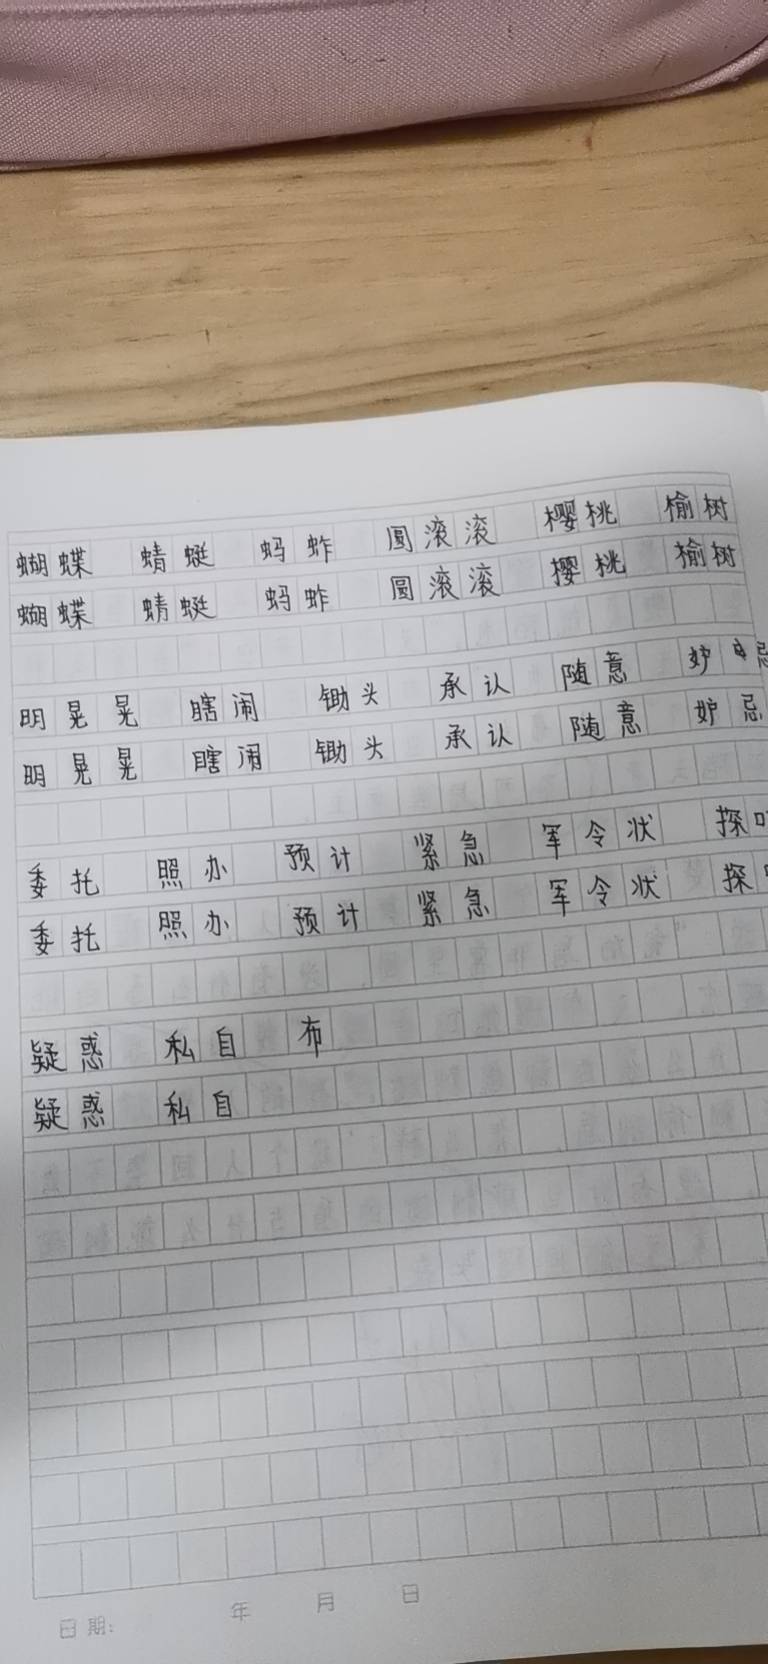 蝴蝶 蜻蜓 蚂蚱 圆滚滚 樱桃 榆树
蝴蝶 蜻蜓 蚂蚱 圆滚滚 樱桃 榆树
明晃晃 瞎闹 锄头 承认 随意 妒忌
明晃晃 瞎闹 锄头 承认 随意 妒忌
委托 照办 预计 紧急 军令状 探
委托 照办 预计 紧急 军令状 探
疑惑 私自 布
疑惑 私自
日期: 年 月 日